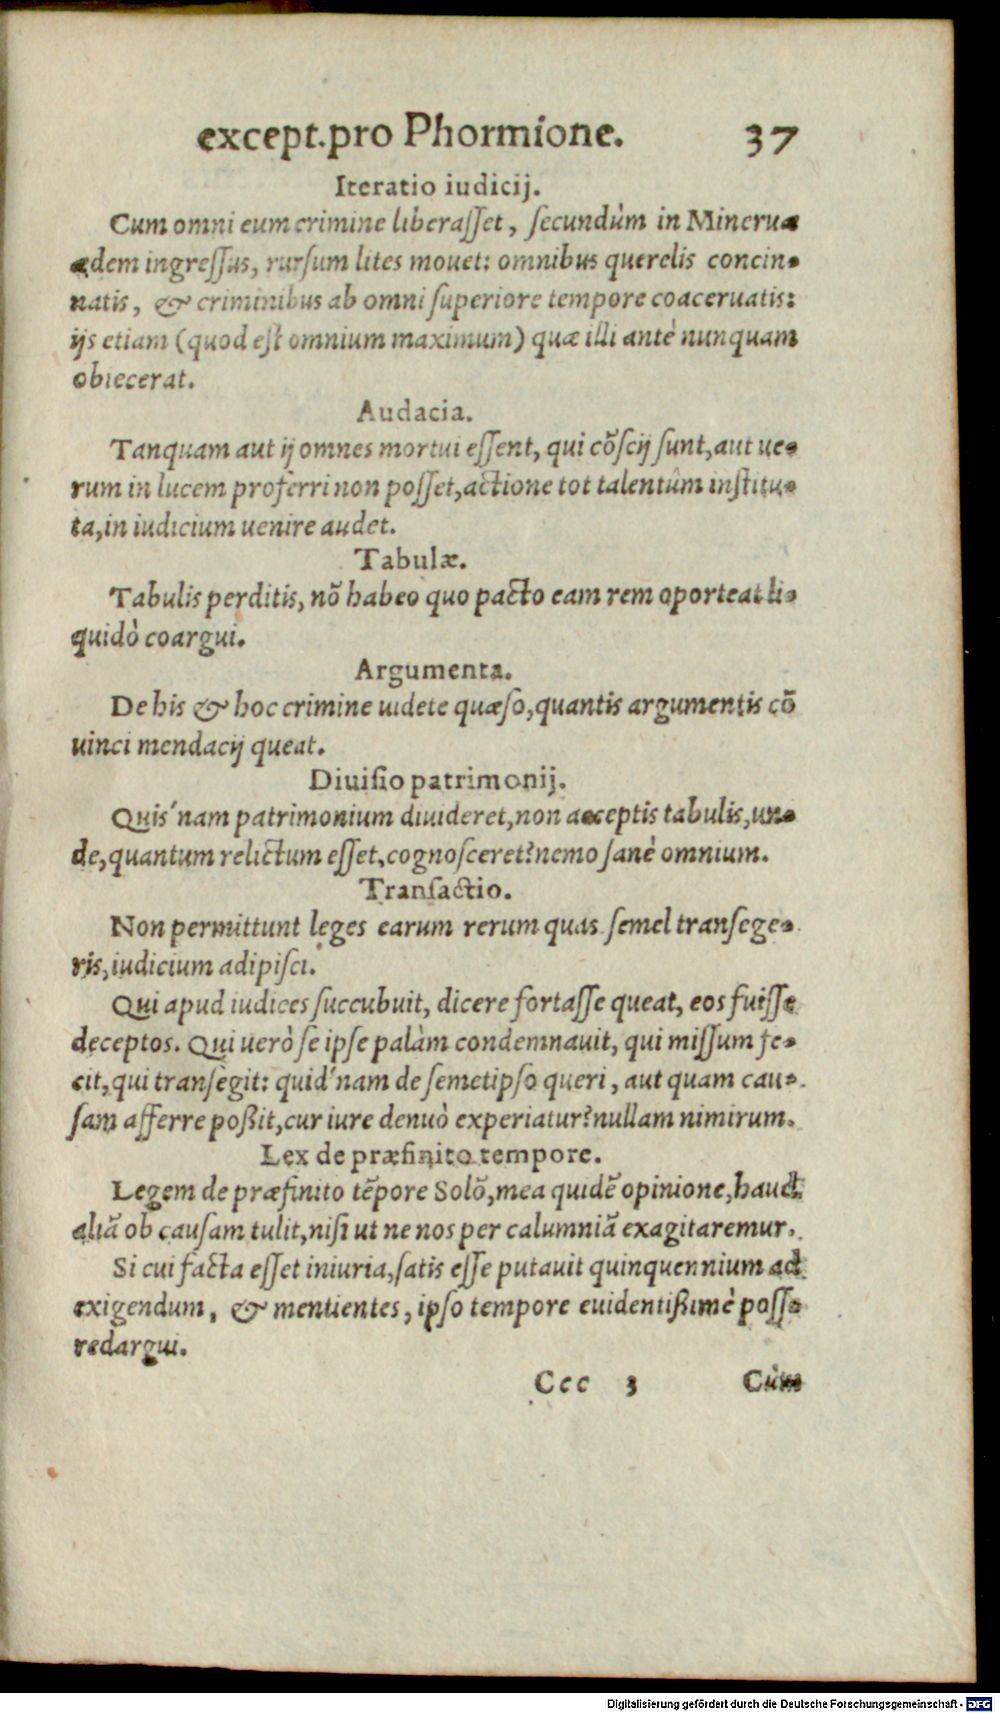 except.pro Phormione. 37
Iteratio iudicij.
Cum omni eum crimine liberaſſet, ſecundùm in Mineruæ
ædem ingreſſus, rurſum lites mouet: omnibus querelis concin-
natis, & criminibus ab omni ſuperiore tempore coaceruatis:
ijs etiam (quod eſt omnium maximum) quæ illi antè nunquam
obiecerat.
Audacia.
Tanquam aut ij omnes mortui eſſent, qui cõſcij ſunt, aut ue-
rum in lucem proferri non poſſet, actione tot talentûm inſtitu-
ta, in iudicium uenire audet.
Tabulæ.
Tabulis perditis, nõ habeo quo pacto eam rem oporteat li-
quidò coargui.
Argumenta.
De his & hoc crimine uidete quæſo, quantis argumentis cõ
uinci mendacij queat.
Diuiſio patrimonij.
Quis'nam patrimonium diuideret, non acceptis tabulis, un-
de, quantum relictum eſſet, cognoſceret? nemo ſanè omnium.
Tranſactio.
Non permittunt leges earum rerum quas ſemel tranſege-
ris, iudicium adipiſci.
Qui apud iudices ſuccubuit, dicere fortaſſe queat, eos fuiſſe
deceptos. Qui uerò ſe ipſe palàm condemnauit, qui miſſum fe-
cit, qui tranſegit: quid'nam de ſemetipſo queri, aut quam cau-
ſam afferre poßit, cur iure denuò experiatur? nullam nimirum.
Lex de præfinito tempore.
Legem de præfinito tẽpore Solõ, mea quidẽ opinione, haud
aliã ob cauſam tulit, niſi ut ne nos per calumniã exagitaremur.
Si cui facta eſſet iniuria, ſatis eſſe putauit quinquennium ad
exigendum, & mentientes, ipſo tempore euidentißimè poſſe
redargui.
Ccc 3 Cùm
Digitalisierung gefördert durch die Deutsche Forschungsgemeinschaft - DFG